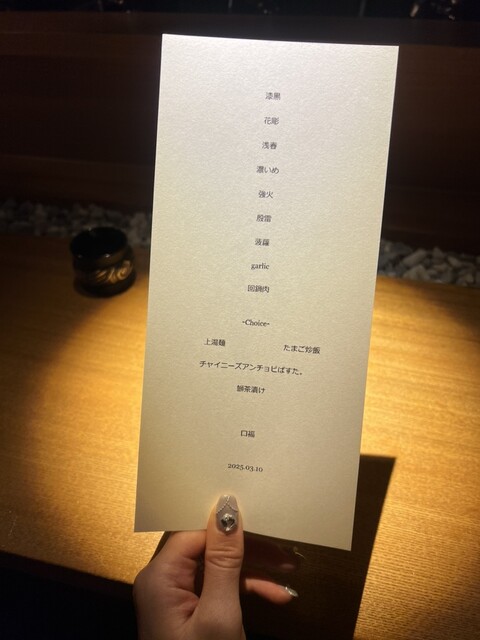 漆黒
花彫
浅春
濃いめ
強火
殷雷
菠蘿
garlic
回鍋肉
-Choice-
上湯麺 たまご炒飯
チャイニーズアンチョビぱすた。
鰻茶漬け
口福
2025.03.10